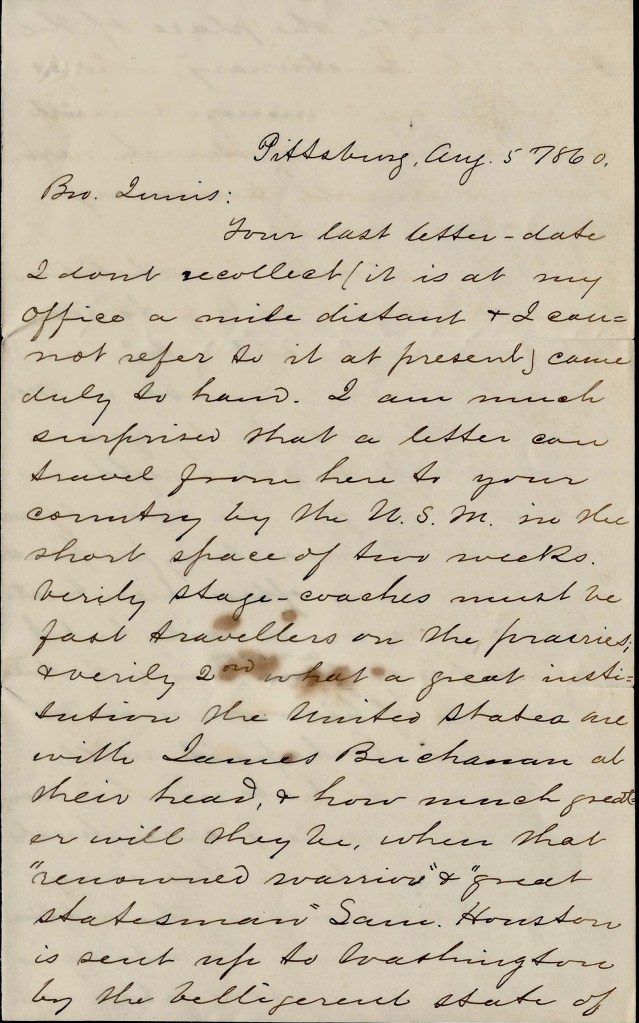 Pittsburg, Aug. 5 1860.
Bro. Lewis:
Your last letter-date
I dont recollect (it is at my
office a mile distant & I can=
not refer to it at present) came
duly to hand. I am much
surprised that a letter can
travel from here to your
country by the U. S. M. in the
short space of two weeks.
Verily stage-coaches must be
fast travellers on the prairies;
& verily 2nd what a great insti=
tution the United States are
with James Buchanan at
their head, & how much great=
er will they be, when that
"renowned warrior" & "great
statesman" Sam. Houston
is sent up to Washington
by the belligerent state of